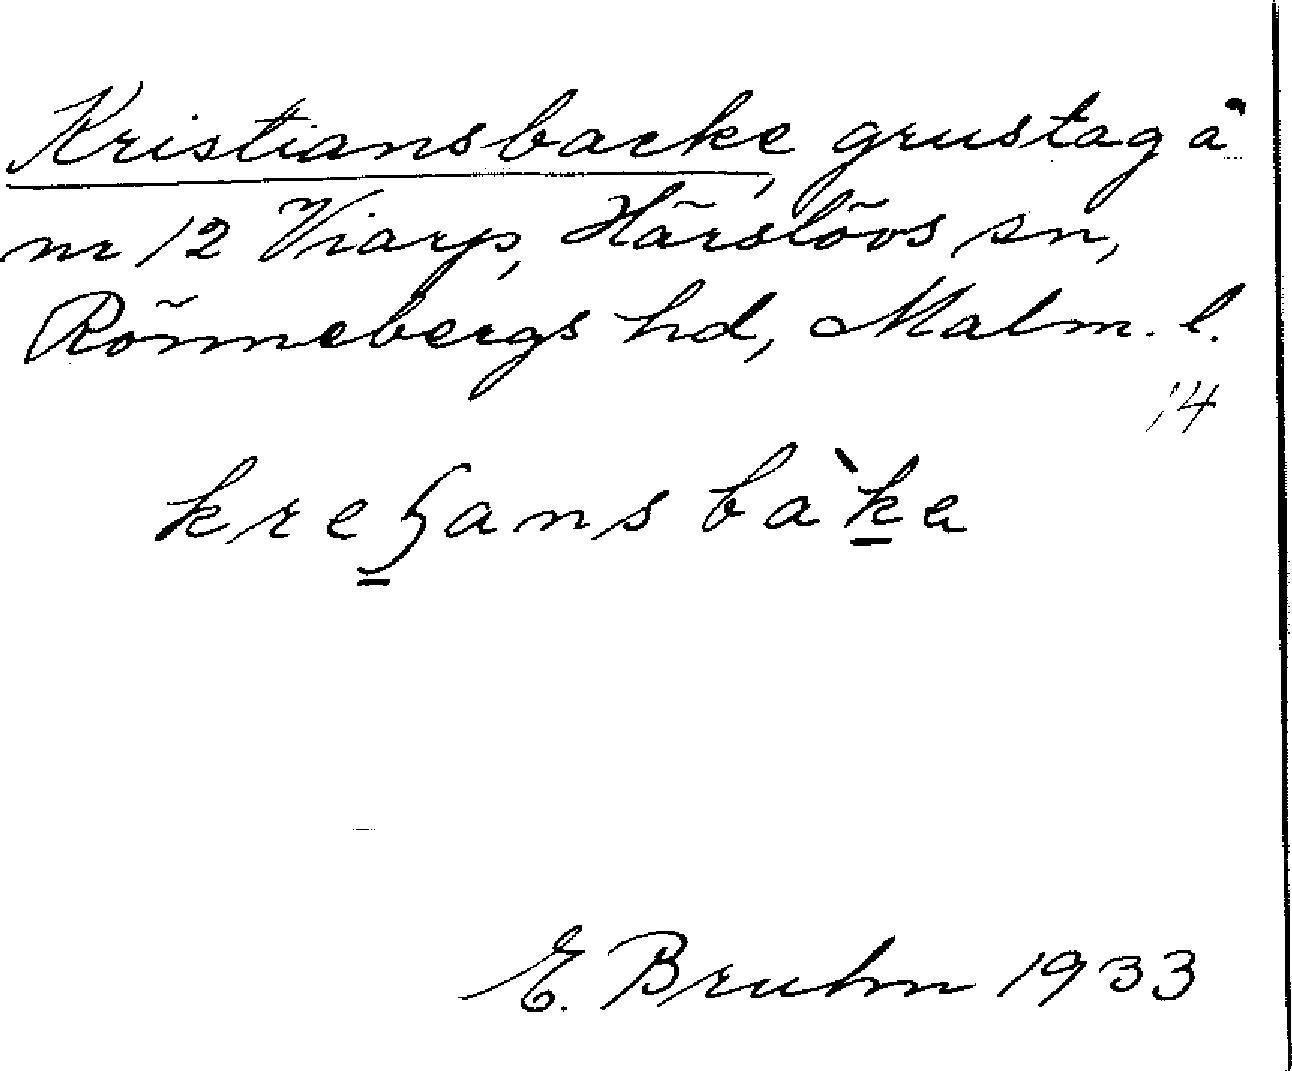 Kristiansbacke, grustag å
nr 12 Viarp, Härslövs sn,
Rönnebergs hd, Malm. l.
14
kreʂansbàkə
E. Bruhn 1933